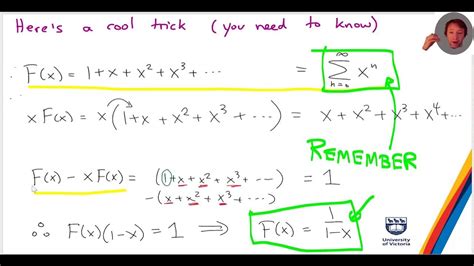 Here's a cool trick (you need to know)
F(x) = 1 + x + x² + x³ + ··· = ∞ Σ n=0 xⁿ
x F(x) = x (1 + x + x² + x³ + ···) = x + x² + x³ + x⁴ + ···
REMEMBER
F(x) - x F(x) = (1 + x + x² + x³ + ···) = 1
-(x + x² + x³ + ···)
∴ F(x)(1-x) = 1 ⟹ F(x) = 1/1-x
University
of Victoria